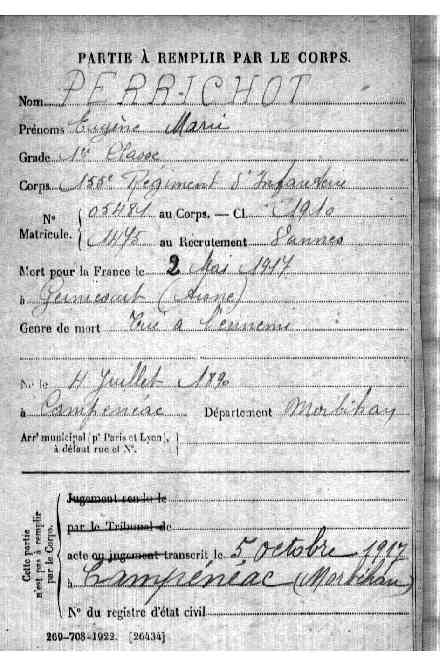 PARTIE À REMPLIR PAR LE CORPS.
Nom PERRICHOT
Prénoms Eugène Marie
Grade 1re Classe
Corps 155e Régiment d'Infanterie
N° Matricule. { 05481 au Corps. — Cl. 1910
1475 au Recrutement Vannes
Mort pour la France le 2 Mai 1917
à (Aisne)
Genre de mort Tué à l'ennemi
Né le 4 Juillet 1890
à Campénéac Département Morbihan
Arrt municipal (pr Paris et Lyon), à défaut rue et N°. }
Cette partie n'est pas à remplir par le Corps.
Jugement rendu le
par le Tribunal de
acte ou jugement transcrit le 5 octobre 1917
à Campénéac (Morbihan)
N° du registre d'état civil
269-708-1922. [26434]